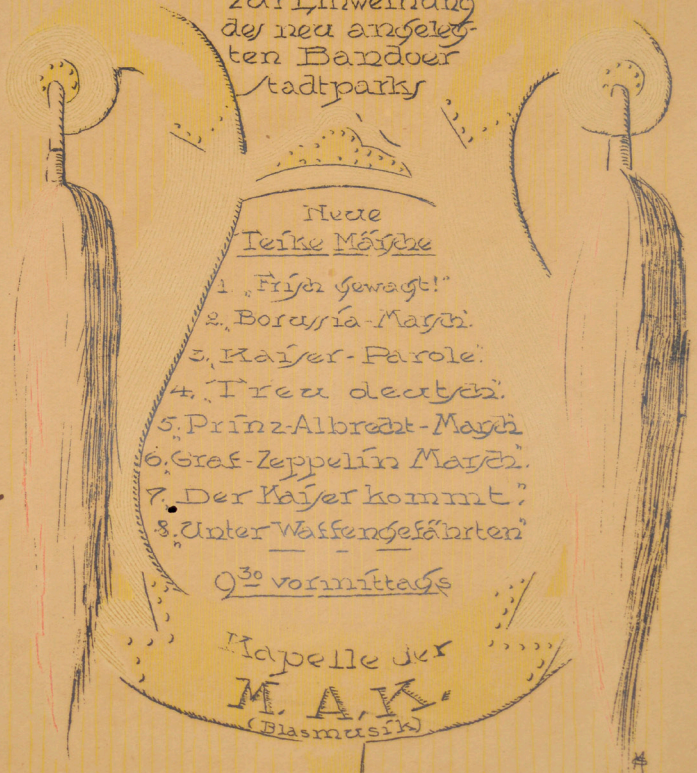 zur Einweihung
des neu angeleg-
ten Bandoer
Stadtparks
Neue
Teike Märsche
1. „Frisch gewagt!“
2. „Borussia-Marsch“.
3. „Kaiser-Parole“.
4. „Treu deutsch“.
5. „Prinz-Albrecht-Marsch“
6. „Graf-Zeppelin Marsch“.
7. „Der Kaiser kommt“.
8. „Unter Waffengefährten“
9³⁰ vormittags
Kapelle der
M. A. K.
(Blasmusik)